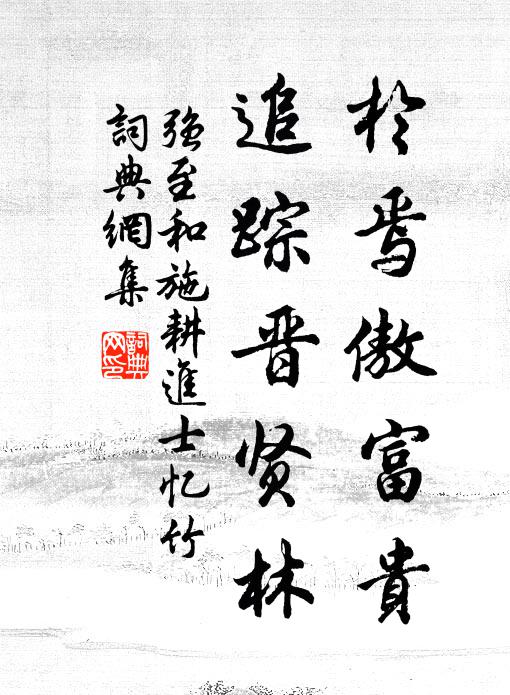 於焉傲富貴
追踪晋贤林
强至和施耕進士忆竹
詞典網集
詞典網印